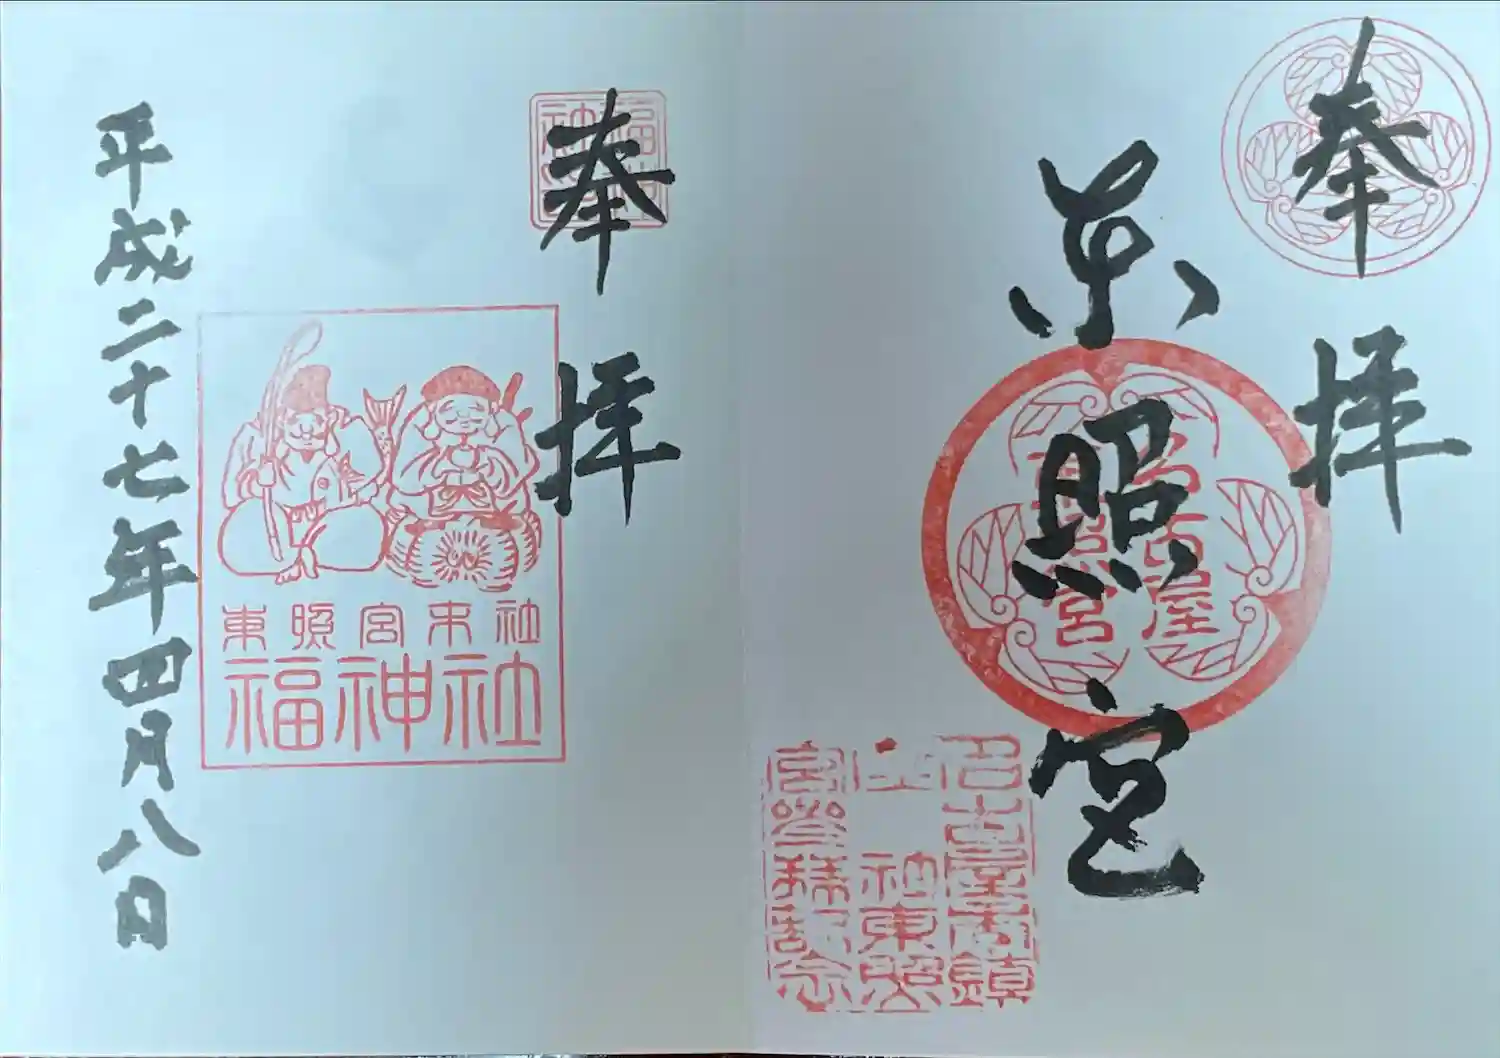 奉拝
東照宮
名古屋
東照宮
名古屋市鎮
社東照
宮参拝記念
奉拝
福神
社
東照宮末社
福神社
平成二十七年四月八日